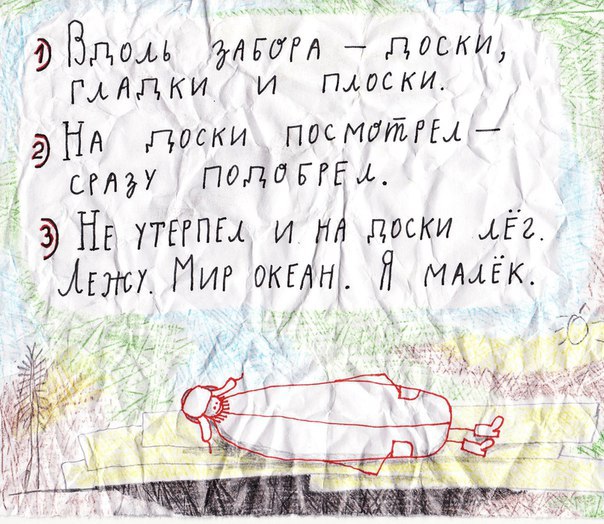 1) Вдоль забора – доски,
гладки и плоски.
2) На доски посмотрел –
сразу подобрел.
3) Не утерпел и на доски лёг.
Лежу. Мир океан. Я малёк.